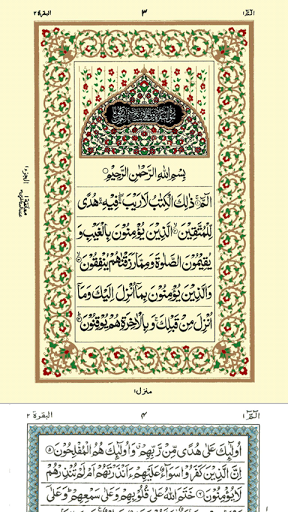 البقرة ٢
٣
الٓمّٓ ١
بِسْمِ اللّٰهِ الرَّحْمٰنِ الرَّحِيْمِ
الٓمّٓ ۚ ذٰلِكَ الْكِتٰبُ لَا رَيْبَ ۛ فِيْهِ ۛ هُدًى
لِّلْمُتَّقِيْنَ ۙ الَّذِيْنَ يُؤْمِنُوْنَ بِالْغَيْبِ وَ
يُقِيْمُوْنَ الصَّلٰوةَ وَمِمَّا رَزَقْنٰهُمْ يُنْفِقُوْنَ ۙ
وَالَّذِيْنَ يُؤْمِنُوْنَ بِمَآ اُنْزِلَ اِلَيْكَ وَمَآ
اُنْزِلَ مِنْ قَبْلِكَ ۚ وَبِالْاٰخِرَةِ هُمْ يُوْقِنُوْنَ ؕ
منزل ١
البقرة ٢
٤
الٓمّٓ ١
اُولٰٓئِكَ عَلٰى هُدًى مِّنْ رَّبِّهِمْ ۗ وَاُولٰٓئِكَ هُمُ الْمُفْلِحُوْنَ ٥
اِنَّ الَّذِيْنَ كَفَرُوْا سَوَآءٌ عَلَيْهِمْ ءَاَنْذَرْتَهُمْ اَمْ لَمْ تُنْذِرْهُمْ
لَا يُؤْمِنُوْنَ ٦ خَتَمَ اللّٰهُ عَلٰى قُلُوْبِهِمْ وَعَلٰى سَمْعِهِمْ ؕ وَعَلٰٓى